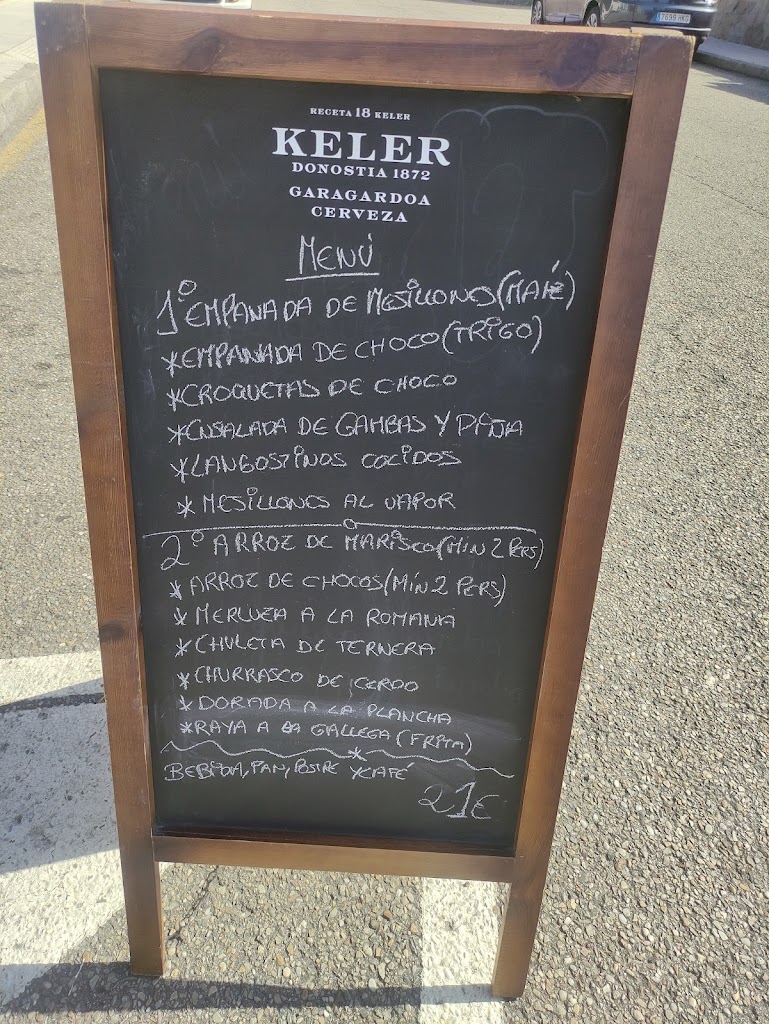 RECETA 18 KELER
KELER
DONOSTIA 1872
GARAGARDOA
CERVEZA
MENÚ
1º EMPANADA DE MESILLONES (MAIZ)
*EMPANADA DE CHOCO (TRIGO)
*CROQUETAS DE CHOCO
*ENSALADA DE GAMBAS Y PIÑA
*LANGOSTINOS COCIDOS
*MESILLONES AL VAPOR
2º ARROZ DE MARISCO (MIN 2 PERS)
*ARROZ DE CHOCOS (MÍN 2 PERS)
*MERLUZA A LA ROMANA
*CHULETA DE TERNERA
*CHURRASCO DE CERDO
*DORADA A LA PLANCHA
*RAYA A LA GALLEGA (FRITA)
BEBIDA, PAN, POSTRE Y CAFÉ
21€